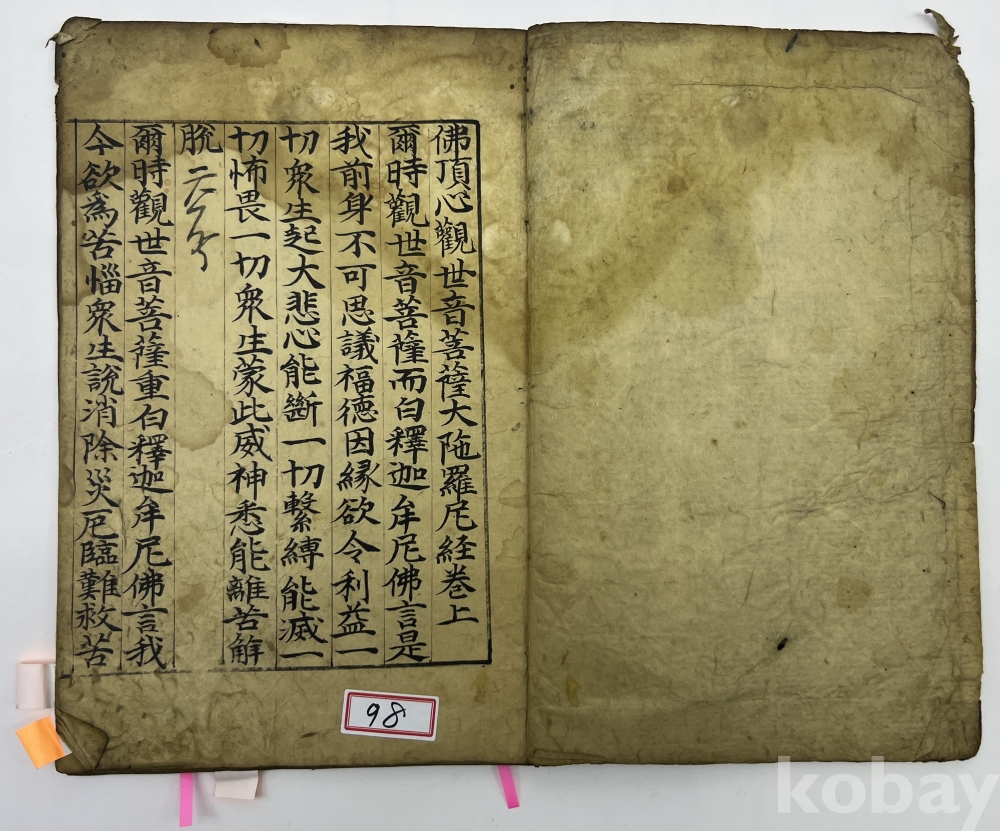 佛頂心觀世音菩薩大陁羅尼経巻上
爾時觀世音菩薩而白釋迦牟尼佛言是
我前身不可思議福德因縁欲令利益一
切衆生起大悲心能斷一切繫縛能滅一
切怖畏一切衆生蒙此威神悉能離苦解
脫
爾時觀世音菩薩重白釋迦牟尼佛言我
今欲爲苦惱衆生說消除災厄臨難救苦
98
kobay